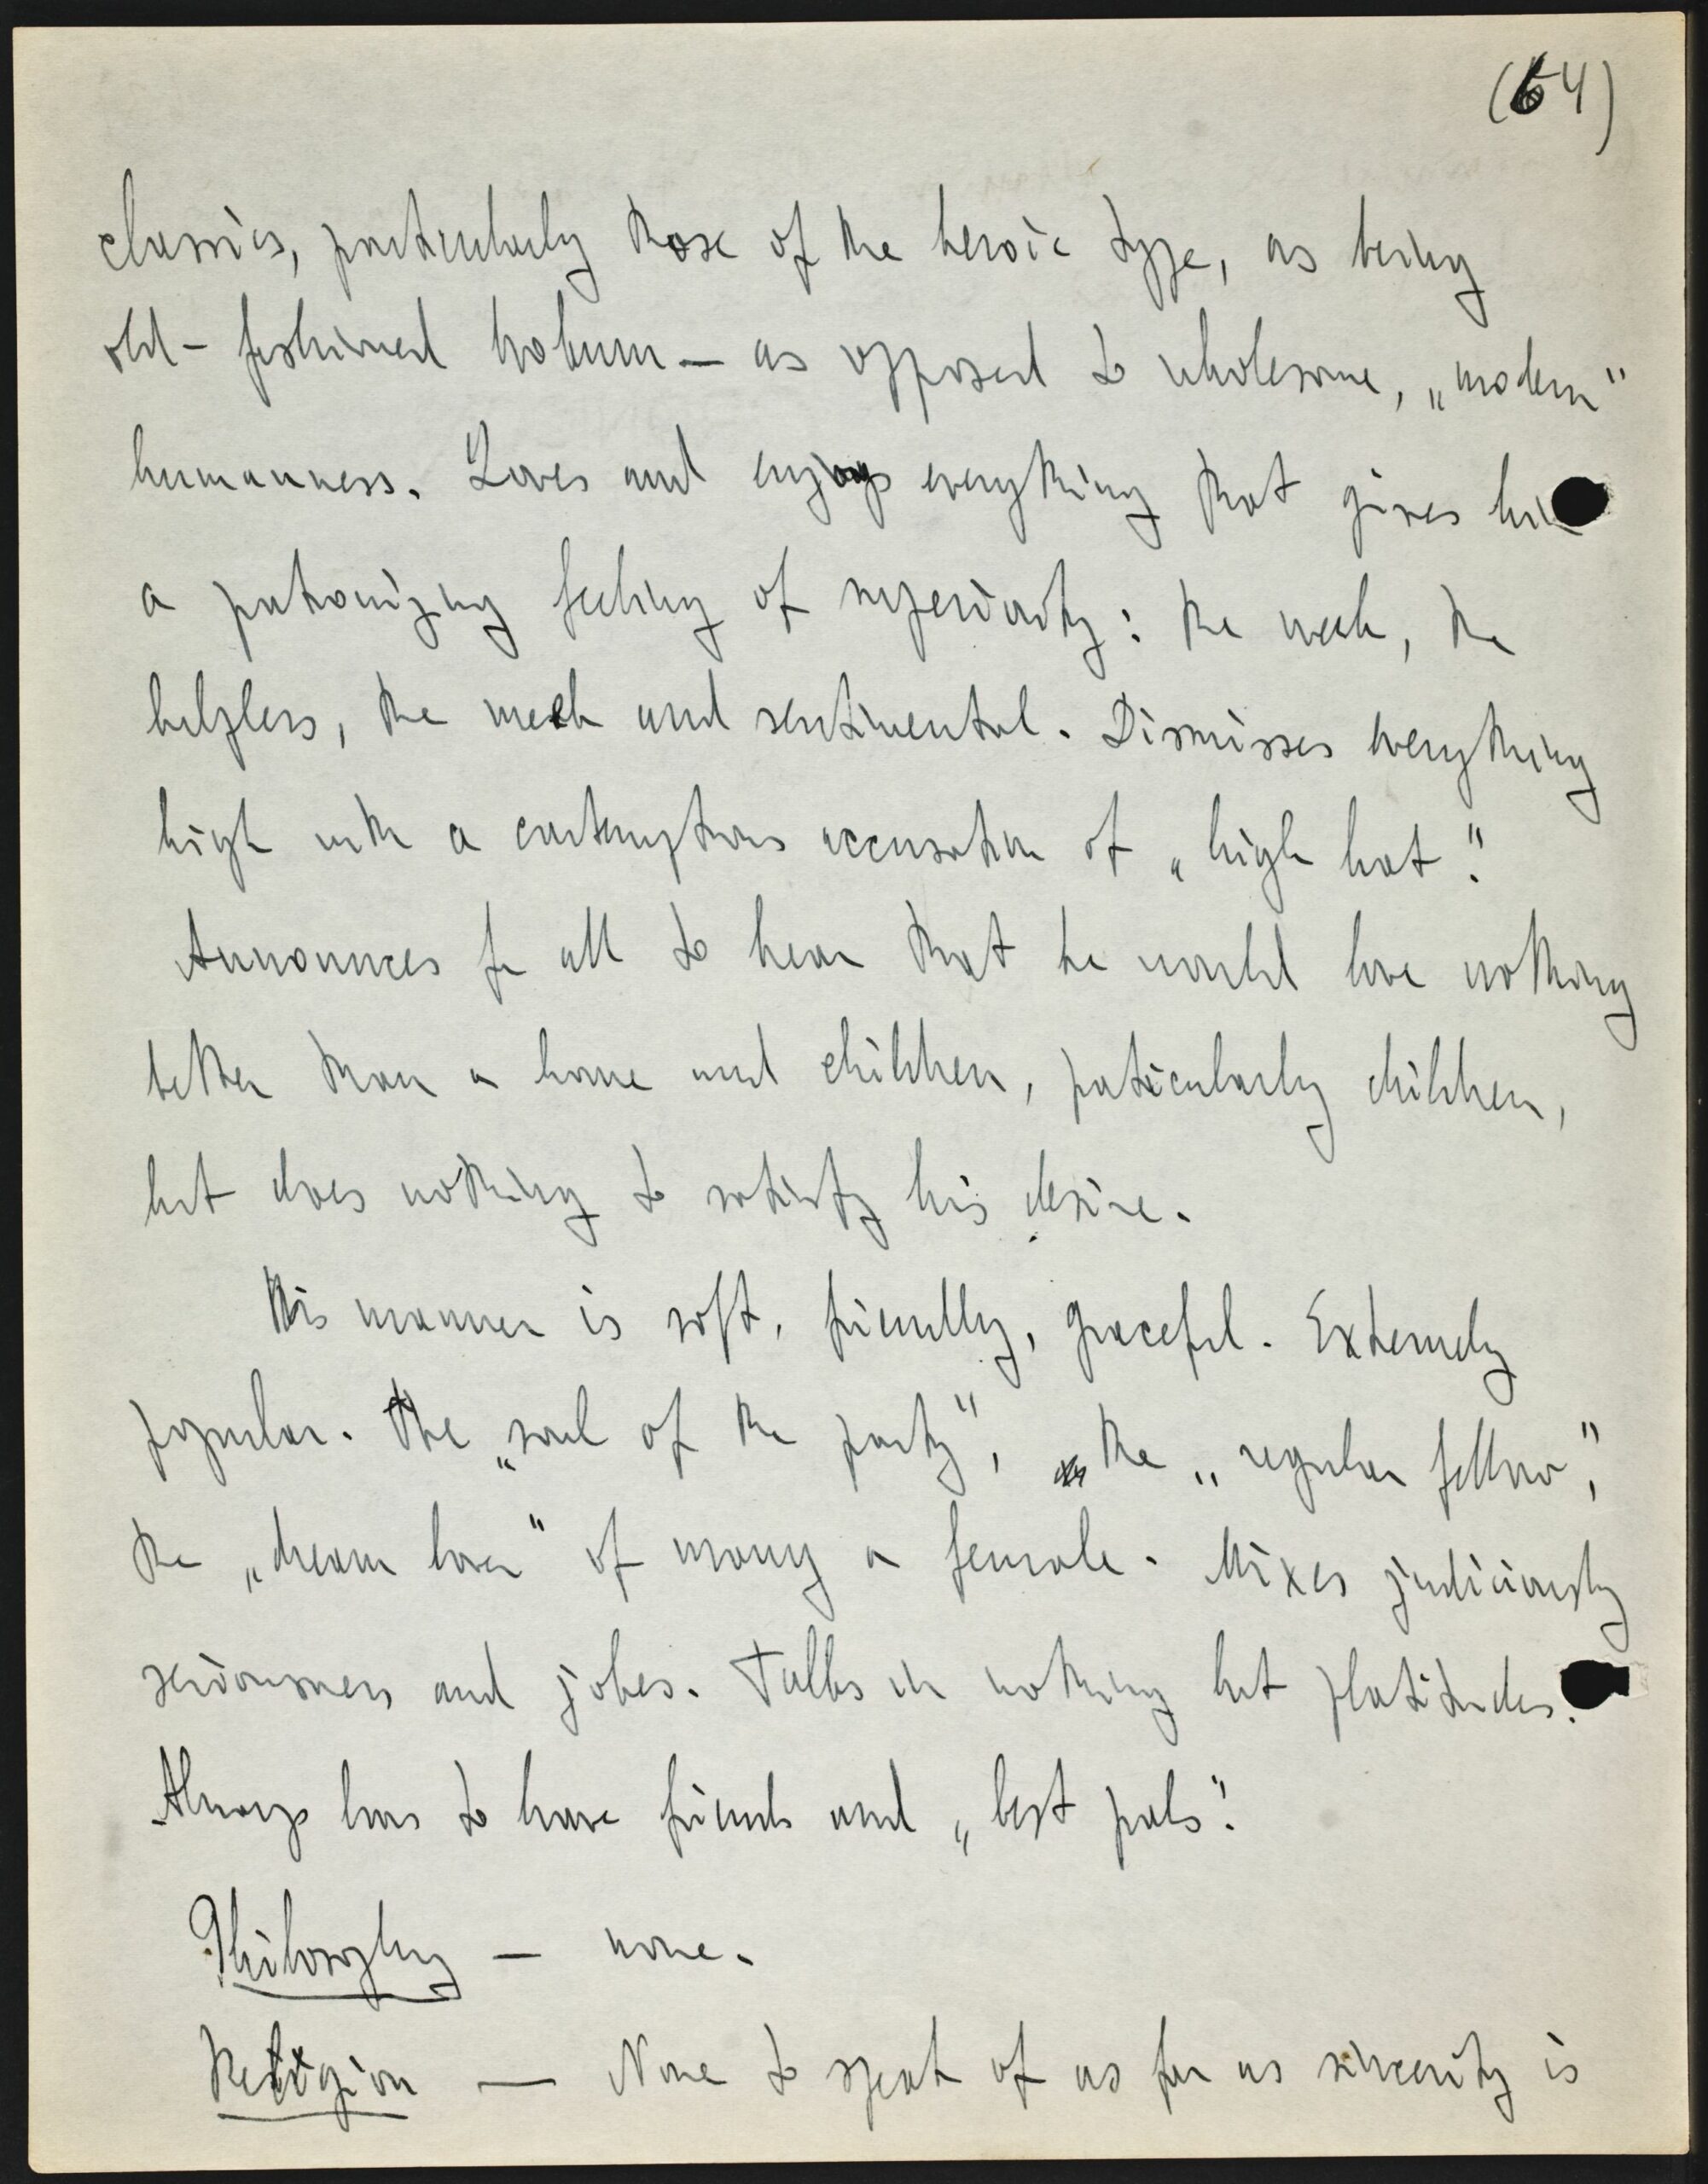 (64)
classics, particularly those of the heroic type, as being
old-fashioned hokum — as opposed to wholesome, „modern"
humanness. Loves and enjoys everything that gives him
a patronizing feeling of superiority: the weak, the
helpless, the meek and sentimental. Dismisses everything
high with a contemptous accusation of „high hat".
Announces for all to hear that he would love nothing
better than a home and children, paticularly children,
but does nothing to satisfy his desire.
His manner is soft, friendly, graceful. Extemely
popular. The „soul of the party", the „regular fellow",
the „dream lover" of many a female. Mixes judiciously
seriousness and jokes. Talks in nothing but platitudes.
Always has to have friends and „best pals".
Philosophy — none.
Religion — None to speak of as far as sincerity is